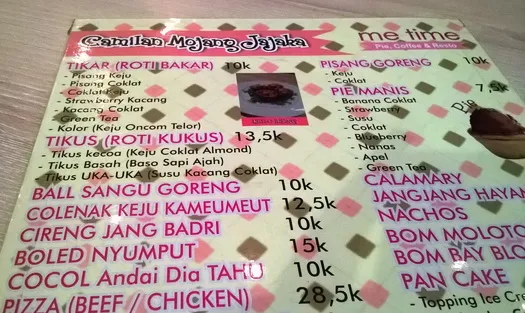 Camilan Mojang Jajaka
me time
Pie, Coffee & Resto
TIKAR (ROTI BAKAR) 10k
- Pisang Keju
- Pisang Coklat
- Coklat Keju
- Strawberry Kacang
- Kacang Coklat
- Green Tea
- Kolor (Keju Oncom Telor)
TIKUS (ROTI KUKUS) 13,5k
- Tikus kecoa (Keju Coklat Almond)
- Tikus Basah (Baso Sapi Ajah)
- Tikus UKA-UKA (Susu Kacang Coklat)
BALL SANGU GORENG 10k
COLENAK KEJU KAMEUMEUT 12,5k
CIRENG JANG BADRI 10k
BOLED NYUMPUT 15k
COCOL Andai Dia TAHU 10k
PIZZA (BEEF / CHICKEN) 28,5k
PISANG GORENG 10k
- Keju
- Coklat
PIE MANIS 7,5k
- Banana Coklat
- Strawberry
- Susu
- Coklat
- Blueberry
- Nanas
- Apel
- Green Tea
CALAMARY
JANGJANG HAYA
NACHOS
BOM MOLOTO
BOM BAY BLO
PAN CAKE
- Topping Ice Cre